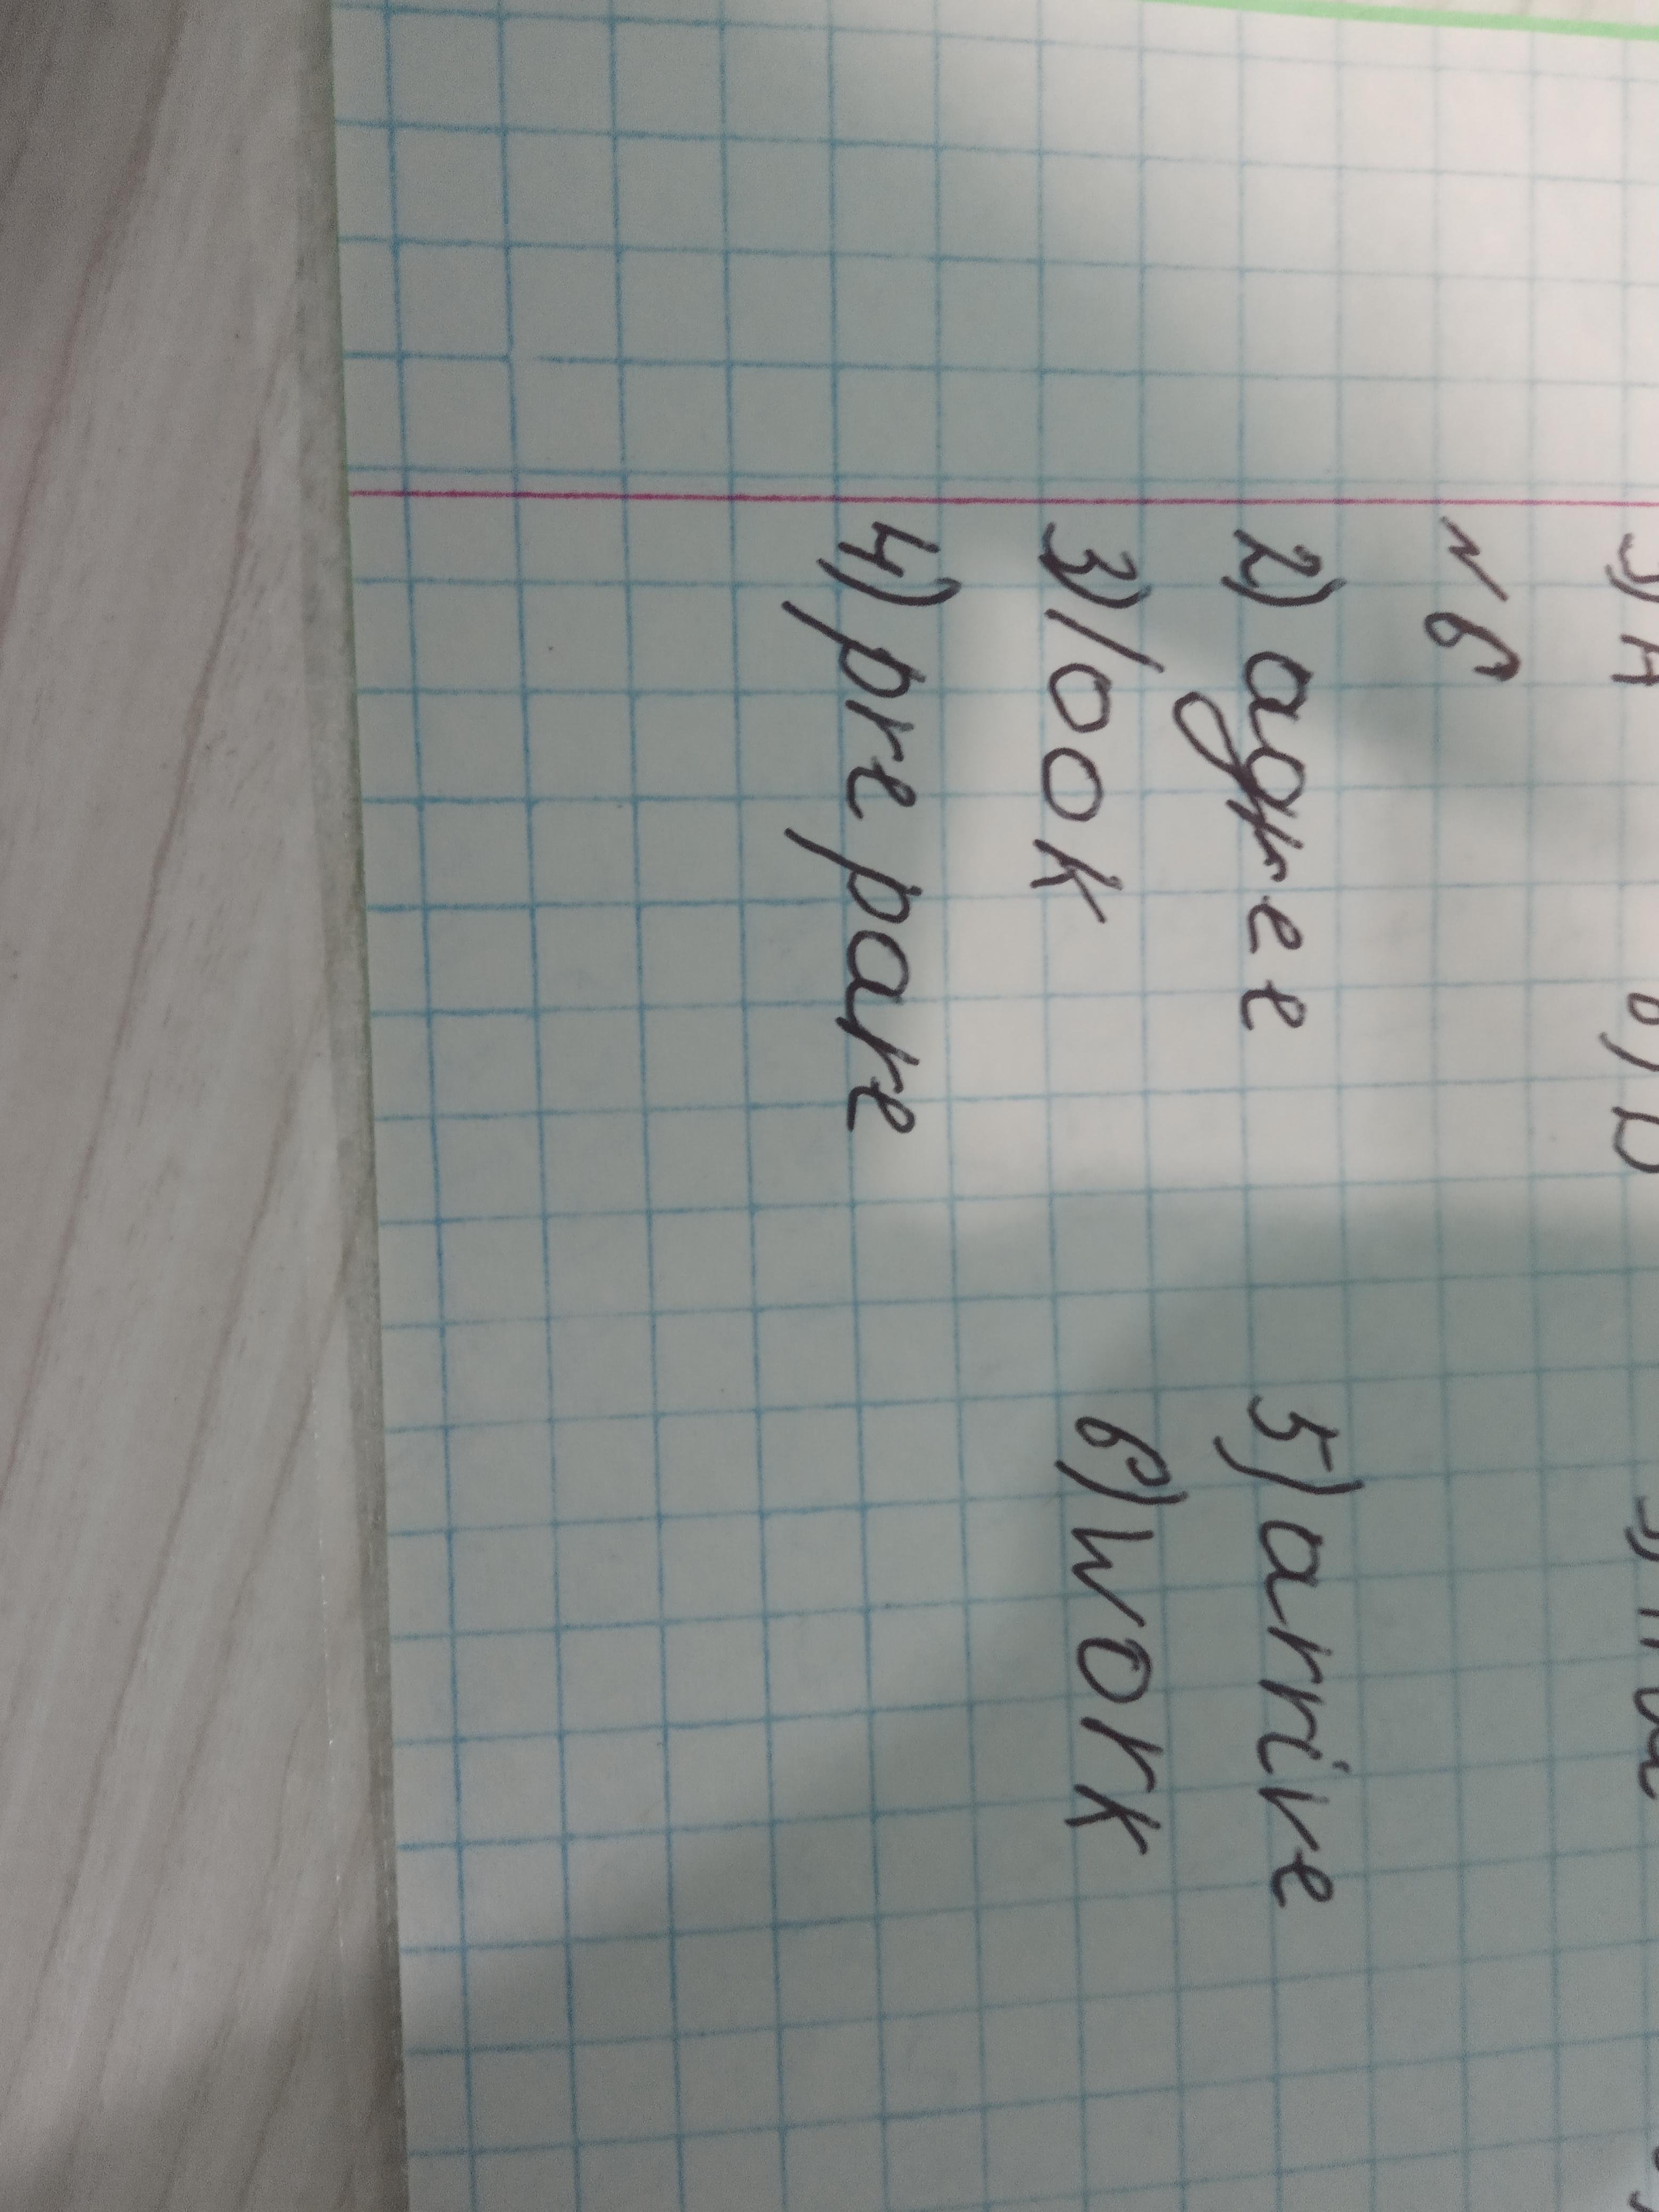 N 6
2) agree 5) arrive
3) look 6) work
4) prepare